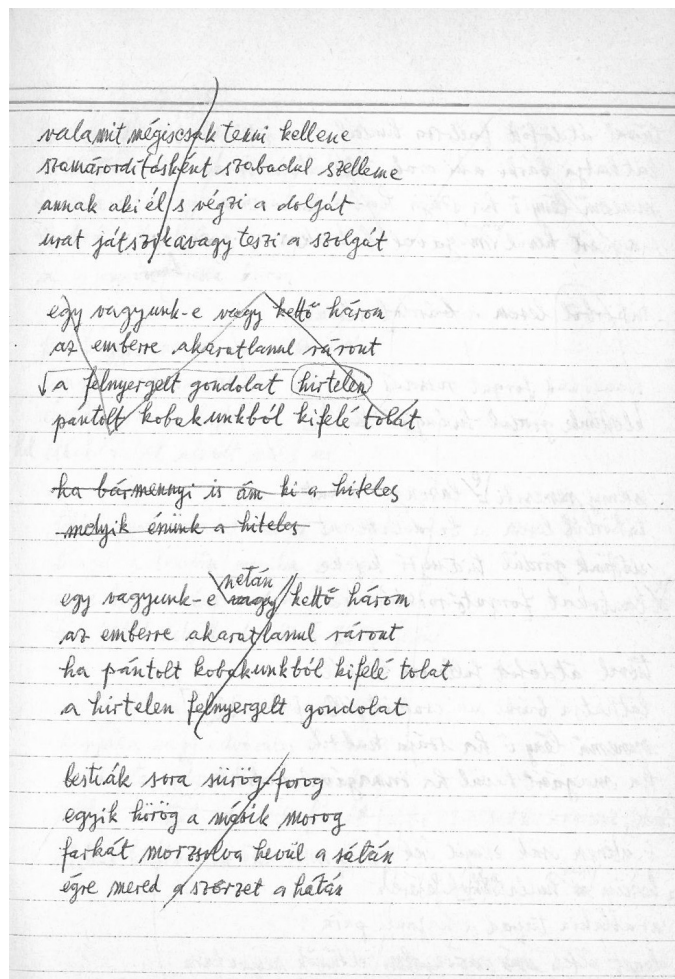 valamit mégiscsak tenni kellene
szamárordításként szabadul szelleme
annak aki él s végzi a dolgát
urat játszik avagy teszi a szolgát
egy vagyunk-e vagy kettő három
az emberre akaratlanul ráront
a felnyergelt gondolat hirtelen
pántolt kobakunkból kifelé tolat
ha bármennyi is ám ki a hiteles
melyik énünk a hiteles
netán
egy vagyunk-e vagy kettő három
az emberre akaratlanul ráront
ha pántolt kobakunkból kifelé tolat
a hirtelen felnyergelt gondolat
bestiák sora sürög-forog
egyik hörög a másik morog
farkát morzsolva hevül a sátán
égre mered a szőrzet a hátán